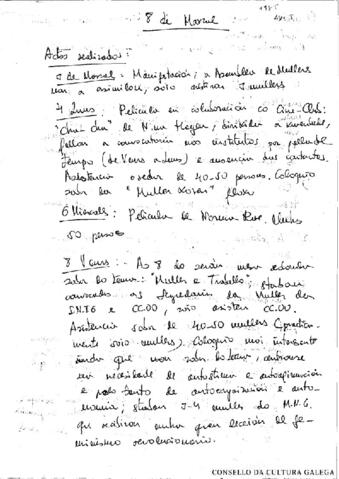 8 de Marzal
Actos realizados:
de Marzal: Manifestación; a Asamblea de Mulleres
asistiron 7 mulleres
4 Luns: Película en colaboración co Cine-Club:
de Nina Hagen, dirixida a xuventude,
fallou a convocatoria nos institutos por falta de
tempo (de Vens a Luns) e ausencia dos cartaces.
Asistencia o sedor de 40-50 persoas. Coloquio
sobre la "Muller Xoven" floxo
6 Miercoles: Película de Norma Rae. Unhas
50 persoas
8 Vens: As 8 do serán mesa redonda
sobor do tema: Muller e Traballo; staban
convocadas as segredarias da Muller da
I.N.T.G e CC.OO, soio asisteu CC.OO.
Asistencia sobor de 40-50 mulleres (practica-
mente soio mulleres). Coloquio moi interesante
anda que non sobor do tema, centrouse
na necesidade de autoestima e autoafirmación
e polo tanto de autoorganización e auto-
nomia; staban 3-4 mulleres do M.N.G.
que resaltaron unha gran leccion de fe-
minismo revolucionario.
CONSELLO DA CULTURA GALEGA